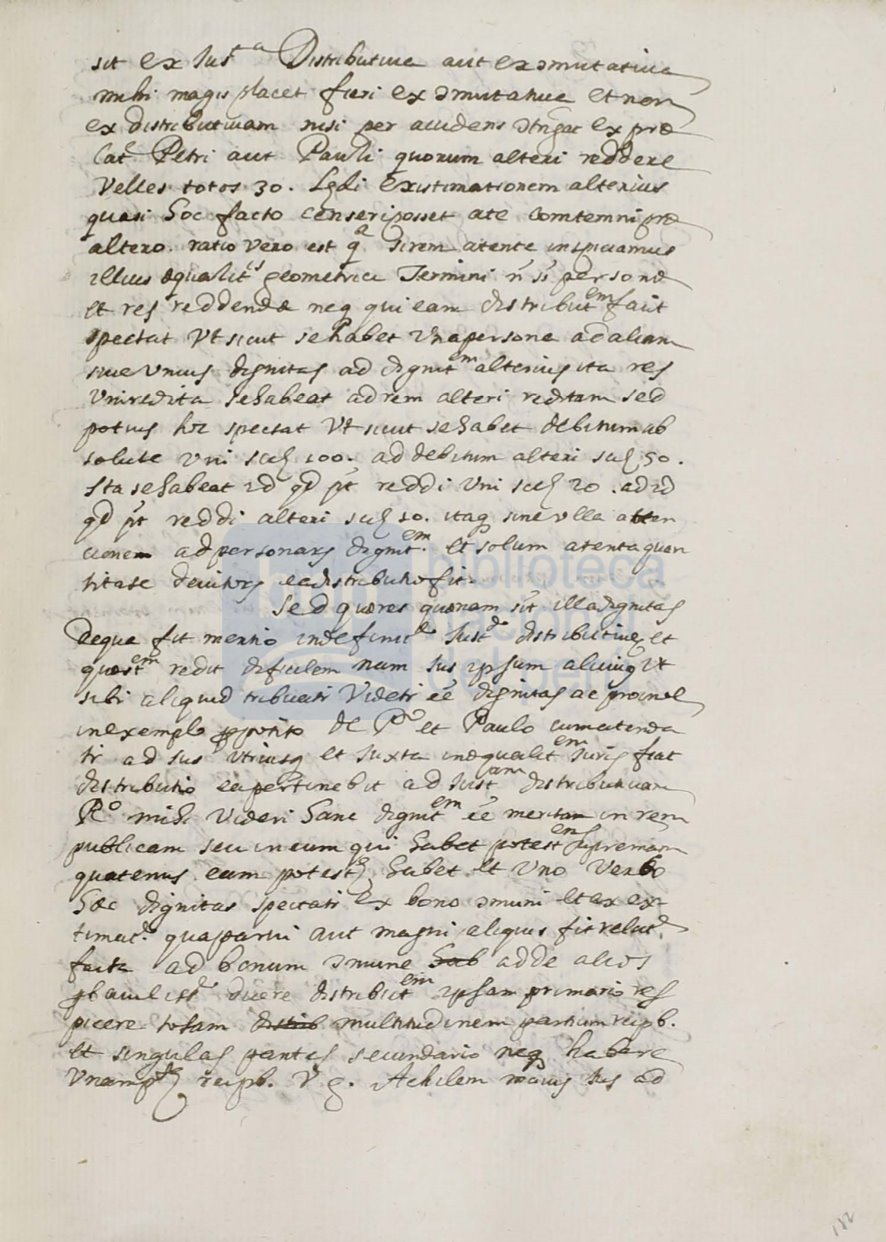 sit ex Just.a Distributiva aut ex cmutativa
mihi magis placet fieri ex cmutativa et non
ex distributivam nisi per accidens ctingat ex præ
Petri aut Pauli quorum alteri reddere
velles totos 30. existimationem alterius
quasi hoc facto censeri posset a te comtemni præ
altero. ratio vero est qa si rem atente inspiciamus
illius æqualitis geometrice Termini n si personæ
et res reddendæ neq qui eam distributem facit
spectat Vt sicut se habet una persona ad aliam
sive Unius dignitas ad dignitem alterius ita res
Uni redita se habeat ad rem alteri reditam sed
potius hic spectat Vt sicut se habet debitum ab
solute Uni 100. ad debitum alteri 50.
Ita se habeat id qd pt reddi Uni 20. ad id
qd pt reddi alteri 10. itaq sine ulla atten
cionem ad personars dignitem. et solum atenta quan
titate ea distributio fit.
Sed quæres quænam sit illa dignitas
De qua fit mentio in definite Justæ distributive et
quæstem redit dificilem nam Jus ipsum alicuiq Vt
sibi aliquid tribuatr Videtr eē dignitas ac proinde
in exemplo pposito de Po et Paulo cum atenda
tr ad Jus Utriusq et Juxta inæqualitem Juris fiat
distributio ea pertinebit ad Justam distributivam
Ro mihi Videri hanc dignitem eē meritam in rem
publicam seu in eum qui habet potestem supremam
quatenus eam potest habet et Uno Verbo
Hæc dignitas spectatr ex bono cmuni et ex ex
timat. qua parvi aut magni aliquis fit
facta ad bonum cmune adde alios
dicere distributem ipsam primario res
picere totam multitudinem partium reipb.
et singulas partes secundario neq habere
Unam reipb. V. g. Achilem maius Jus ad
182
biblioteca
nacional
del perú